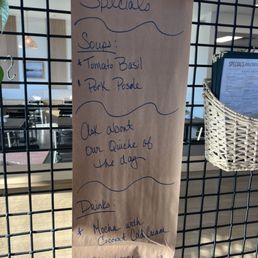 Specials
Soups:
* Tomato Basil
* Pork Posole
Ask about
our Quiche of
the day
Drinks:
* Mocha with
Coconut Cold Cream
SPECIALS